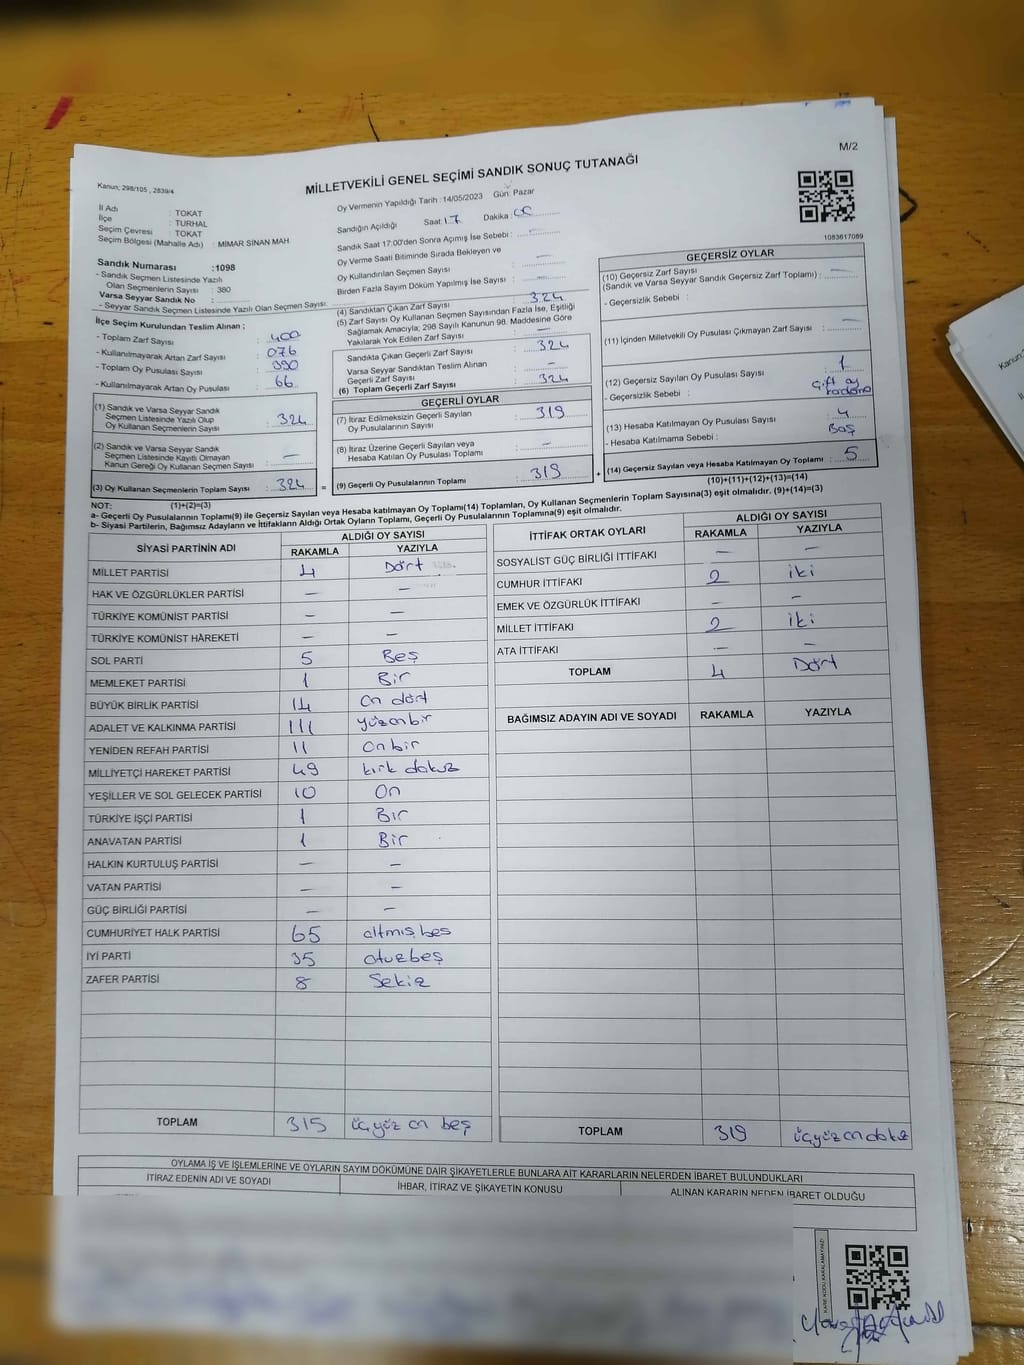 M/2
Kanun; 298/105 , 2839/4
MİLLETVEKİLİ GENEL SEÇİMİ SANDIK SONUÇ TUTANAĞI
İl Adı : TOKAT
İlçe : TURHAL
Seçim Çevresi : TOKAT
Seçim Bölgesi (Mahalle Adı) : MİMAR SİNAN MAH
Sandık Numarası :1098
- Sandık Seçmen Listesinde Yazılı
Olan Seçmenlerin Sayısı : 380
Varsa Seyyar Sandık No :
- Seyyar Sandık Seçmen Listesinde Yazılı Olan Seçmen Sayısı:
İlçe Seçim Kurulundan Teslim Alınan ;
- Toplam Zarf Sayısı : 400
- Kullanılmayarak Artan Zarf Sayısı : 076
- Toplam Oy Pusulası Sayısı : 390
- Kullanılmayarak Artan Oy Pusulası : 66
(1) Sandık ve Varsa Seyyar Sandık
Seçmen Listesinde Yazılı Olup
Oy Kullanan Seçmenlerin Sayısı : 324
(2) Sandık ve Varsa Seyyar Sandık
Seçmen Listesinde Kayıtlı Olmayan
Kanun Gereği Oy Kullanan Seçmen Sayısı : —
(3) Oy Kullanan Seçmenlerin Toplam Sayısı : 324 =
(1)+(2)=(3)
Oy Vermenin Yapıldığı Tarih : 14/05/2023 Gün: Pazar
Sandığın Açıldığı Saat: 17 Dakika : 00
Sandık Saat 17:00'den Sonra Açımış İse Sebebi : —
Oy Verme Saati Bitiminde Sırada Bekleyen ve
Oy Kullandırılan Seçmen Sayısı : —
Birden Fazla Sayım Döküm Yapılmış İse Sayısı : —
(4) Sandıktan Çıkan Zarf Sayısı : 324
(5) Zarf Sayısı Oy Kullanan Seçmen Sayısından Fazla İse, Eşitliği
Sağlamak Amacıyla; 298 Sayılı Kanunun 98. Maddesine Göre
Yakılarak Yok Edilen Zarf Sayısı : —
Sandıkta Çıkan Geçerli Zarf Sayısı : 324
Varsa Seyyar Sandıktan Teslim Alınan
Geçerli Zarf Sayısı : -
(6) Toplam Geçerli Zarf Sayısı : 324
GEÇERLİ OYLAR
(7) İtiraz Edilmeksizin Geçerli Sayılan
Oy Pusulalarının Sayısı : 319
(8) İtiraz Üzerine Geçerli Sayılan veya
Hesaba Katılan Oy Pusulası Toplamı : —
(9) Geçerli Oy Pusulalarının Toplamı : 319 +
1083617089
GEÇERSİZ OYLAR
(10) Geçersiz Zarf Sayısı
(Sandık ve Varsa Seyyar Sandık Geçersiz Zarf Toplamı) : —
- Geçersizlik Sebebi :
(11) İçinden Milletvekili Oy Pusulası Çıkmayan Zarf Sayısı : —
(12) Geçersiz Sayılan Oy Pusulası Sayısı : 1
- Geçersizlik Sebebi : Çift oy
(13) Hesaba Katılmayan Oy Pusulası Sayısı : 4
- Hesaba Katılmama Sebebi : Boş
(14) Geçersiz Sayılan veya Hesaba Katılmayan Oy Toplamı : 5
(10)+(11)+(12)+(13)=(14)
NOT:
a- Geçerli Oy Pusulalarının Toplamı(9) ile Geçersiz Sayılan veya Hesaba katılmayan Oy Toplamı(14) Toplamları, Oy Kullanan Seçmenlerin Toplam Sayısına(3) eşit olmalıdır. (9)+(14)=(3)
b- Siyasi Partilerin, Bağımsız Adayların ve İttifakların Aldığı Ortak Oyların Toplamı, Geçerli Oy Pusulalarının Toplamına(9) eşit olmalıdır.
SİYASİ PARTİNİN ADI ALDIĞI OY SAYISI
RAKAMLA YAZIYLA
MİLLET PARTİSİ 4 Dört
HAK VE ÖZGÜRLÜKLER PARTİSİ — —
TÜRKİYE KOMÜNİST PARTİSİ — —
TÜRKİYE KOMÜNİST HAREKETİ — —
SOL PARTİ 5 Beş
MEMLEKET PARTİSİ 1 Bir
BÜYÜK BİRLİK PARTİSİ 14 on dört
ADALET VE KALKINMA PARTİSİ 111 yüzonbir
YENİDEN REFAH PARTİSİ 11 onbir
MİLLİYETÇİ HAREKET PARTİSİ 49 kırk dokuz
YEŞİLLER VE SOL GELECEK PARTİSİ 10 On
TÜRKİYE İŞÇİ PARTİSİ 1 Bir
ANAVATAN PARTİSİ 1 Bir
HALKIN KURTULUŞ PARTİSİ — —
VATAN PARTİSİ — —
GÜÇ BİRLİĞİ PARTİSİ — —
CUMHURİYET HALK PARTİSİ 65 altmış beş
İYİ PARTİ 35 otuzbeş
ZAFER PARTİSİ 8 Sekiz
TOPLAM 315 üçyüz on beş
İTTİFAK ORTAK OYLARI ALDIĞI OY SAYISI
RAKAMLA YAZIYLA
SOSYALİST GÜÇ BİRLİĞİ İTTİFAKI — —
CUMHUR İTTİFAKI 2 iki
EMEK VE ÖZGÜRLÜK İTTİFAKI — —
MİLLET İTTİFAKI 2 iki
ATA İTTİFAKI — —
TOPLAM 4 Dört
BAĞIMSIZ ADAYIN ADI VE SOYADI RAKAMLA YAZIYLA
TOPLAM 319 üçyüz on dokuz
OYLAMA İŞ VE İŞLEMLERİNE VE OYLARIN SAYIM DÖKÜMÜNE DAİR ŞİKAYETLERLE BUNLARA AİT KARARLARIN NELERDEN İBARET BULUNDUKLARI
İTİRAZ EDENİN ADI VE SOYADI İHBAR, İTİRAZ VE ŞİKAYETİN KONUSU ALINAN KARARIN NEDEN İBARET OLDUĞU
KARE KODU KARALAMAYINIZ!